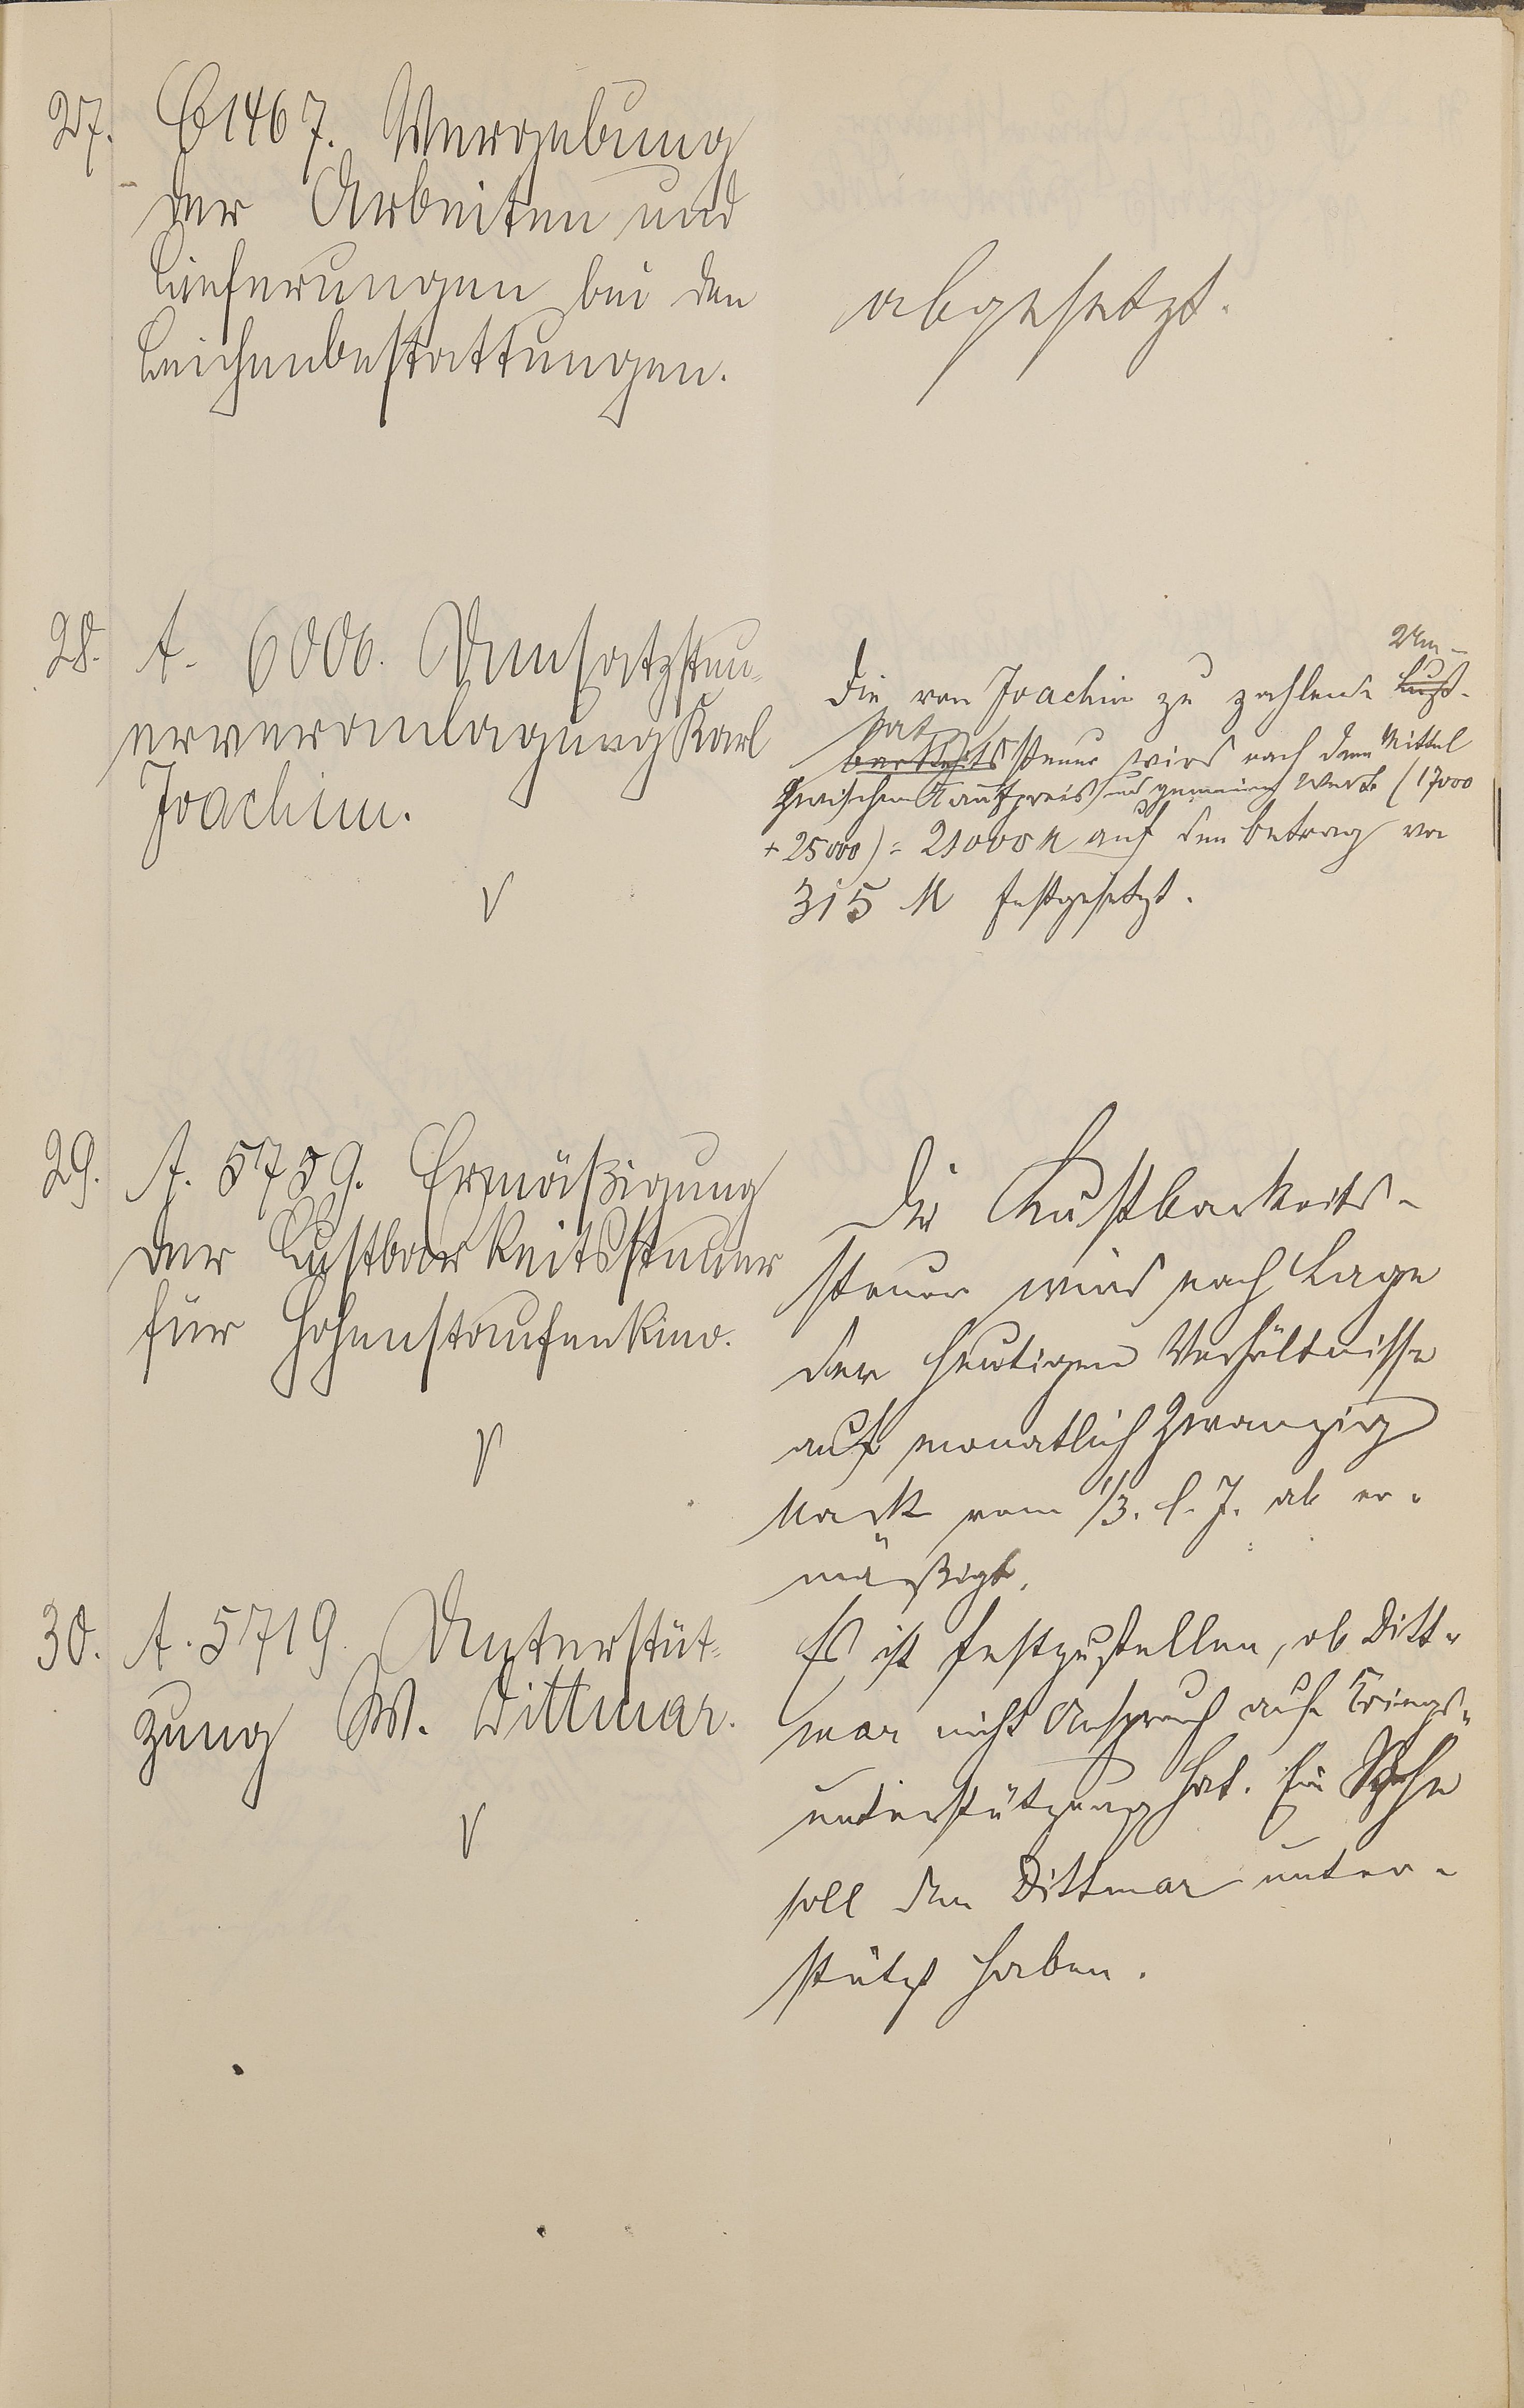 27. C 1467. Vergebung
der Arbeiten und
Lieferungen bei den
Leichenbestattungen.
abgesetzt.
28. A. 6006. Umsatzsteu-
erveranlagung Karl
Joachim.
Um-
Die von Joachim zu zahlende Lust-
satz
barkeitssteuer wird nach dem Mittel
zwischen Kaufpreis und gemeinen Wert (17000
+ 25000) = 21000 M auf den Betrag von
315 M festgesetzt.
29. A. 5759. Ermäßigung
der Lustbarkeitssteuer
für Hohenstaufenkino.
Die Lustbarkeits-
steuer wird nach Lage
der heutigen Verhältnisse
auf monatlich zwanzig
Mark vom 1/3. l. J. ab er-
mäßigt.
30. A. 5719. Unterstüt-
zung W. Dittmar.
Es ist festzustellen, ob Ditt-
mar nicht Anspruch auf Kriegs-
unterstützung hat. Ein Sohn
soll den Dittmar unter-
stützt haben.